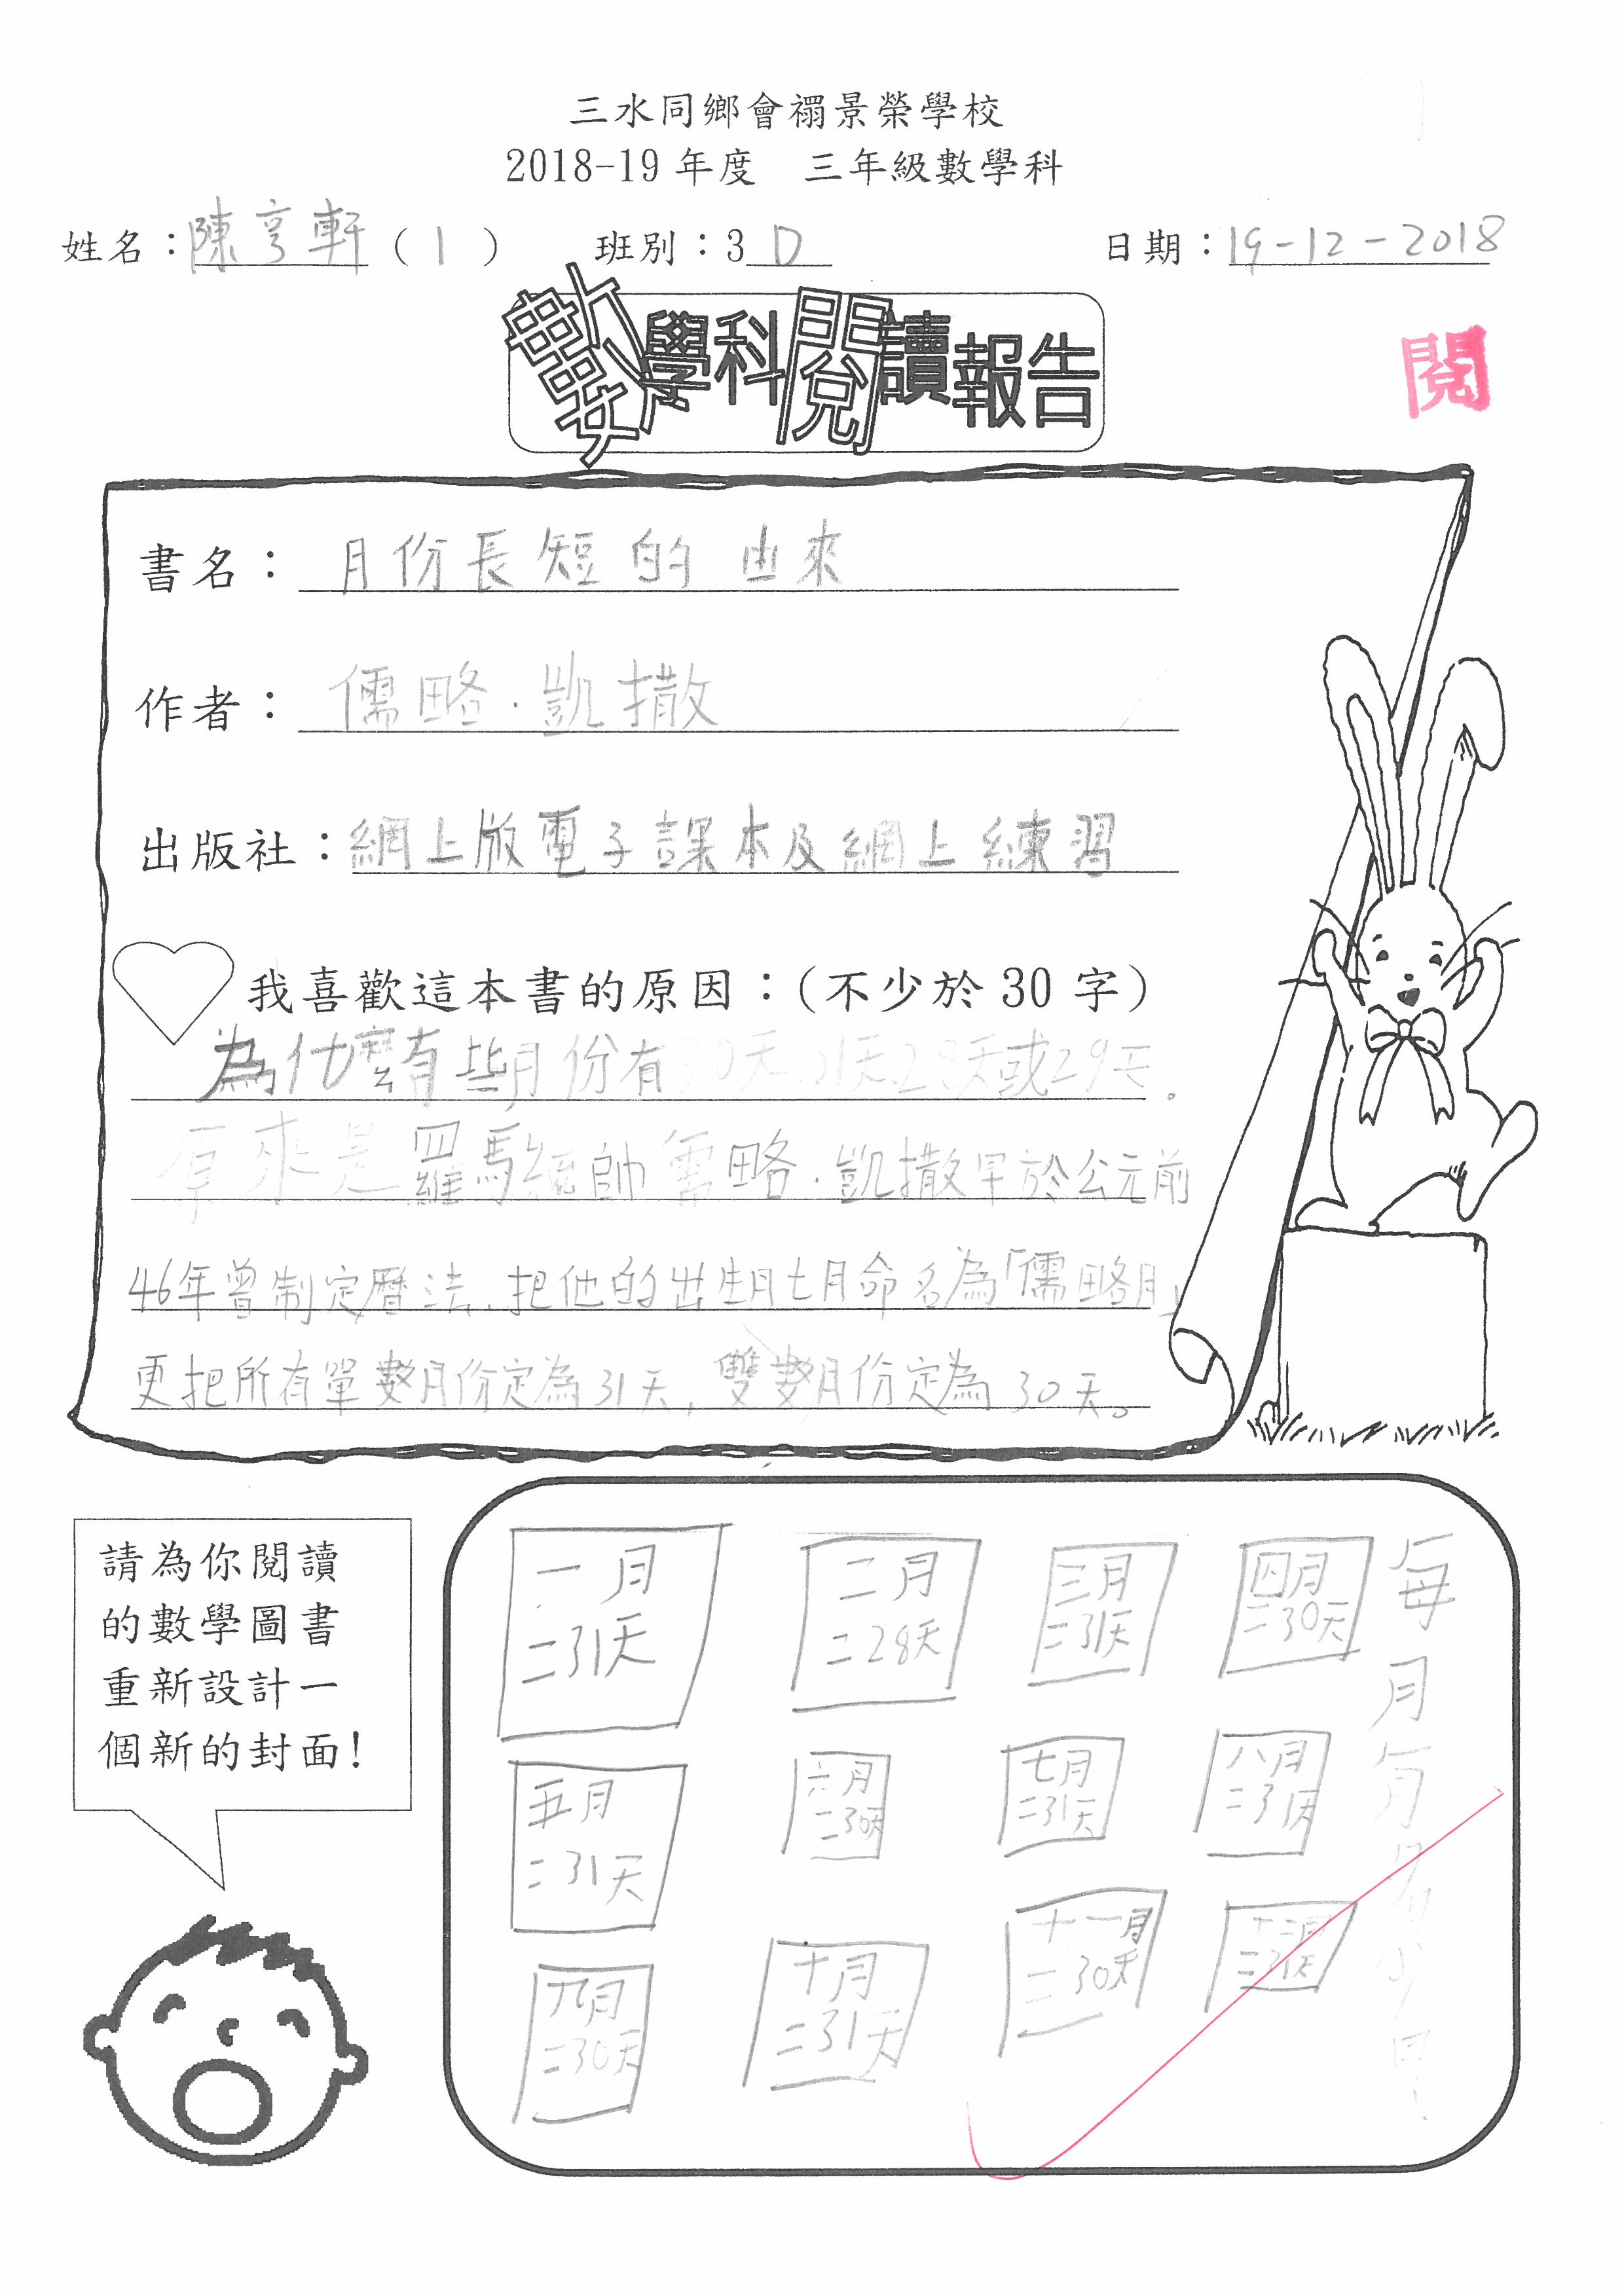 三水同鄉會禤景榮學校
2018-19 年度 三年級數學科
姓名：陳亨軒（1） 班別：3D 日期：19-12-2018
數學科閱讀報告
閱
書名：月份長短的由來
作者：儒略．凱撒
出版社：網上版電子課本及網上練習
我喜歡這本書的原因：(不少於 30 字)
為什麼有些月份有30天,31天,28天或29天。
原來是羅馬統帥儒略．凱撒早於公元前
46年曾制定曆法、把他的出生月七月命名為「儒略月」
更把所有單數月份定為31天，雙數月份定為30天。
請為你閱讀
的數學圖書
重新設計一
個新的封面!
一月
=31天
二月
=28天
三月
=31天
四月
=30天
五月
=31天
六月
=30天
七月
=31天
八月
=31天
九月
=30天
十月
=31天
十一月
=30天
十二月
=31天
每月有